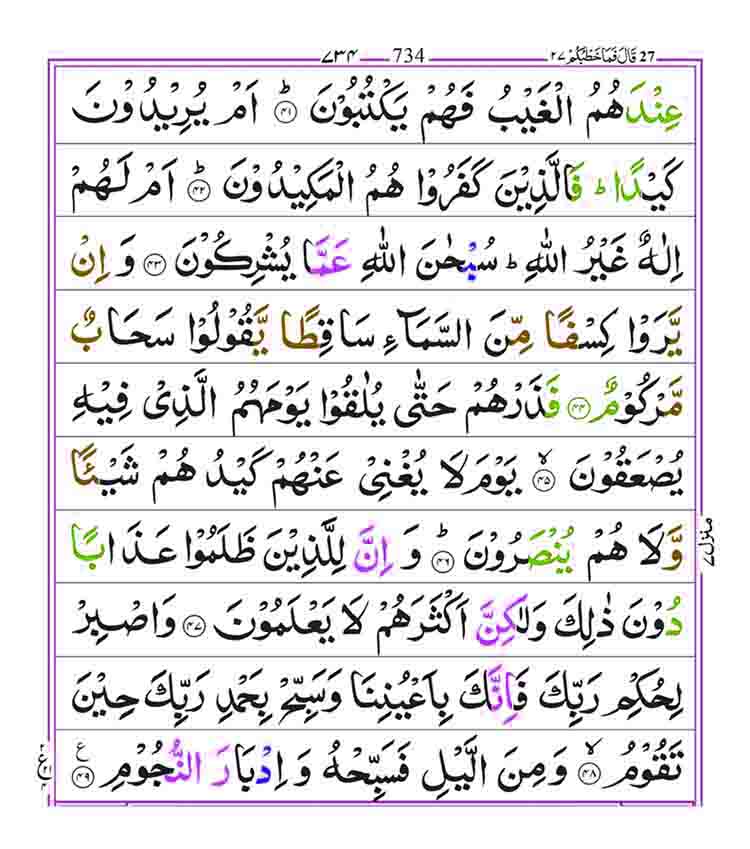 ۷۳۴ 734 27 قَالَ فَمَا خَطْبُكُمْ ۲۷
عِنْدَهُمُ الْغَيْبُ فَهُمْ يَكْتُبُوْنَ ؕ ﴿۴۱﴾ اَمْ يُرِيْدُوْنَ
كَيْدًا ؕ فَالَّذِيْنَ كَفَرُوْا هُمُ الْمَكِيْدُوْنَ ؕ ﴿۴۲﴾ اَمْ لَهُمْ
اِلٰهٌ غَيْرُ اللّٰهِ ؕ سُبْحٰنَ اللّٰهِ عَمَّا يُشْرِكُوْنَ ﴿۴۳﴾ وَ اِنْ
يَّرَوْا كِسْفًا مِّنَ السَّمَآءِ سَاقِطًا يَّقُوْلُوْا سَحَابٌ
مَّرْكُوْمٌ ﴿۴۴﴾ فَذَرْهُمْ حَتّٰى يُلٰقُوْا يَوْمَهُمُ الَّذِيْ فِيْهِ
يُصْعَقُوْنَ ۙ ﴿۴۵﴾ يَوْمَ لَا يُغْنِيْ عَنْهُمْ كَيْدُهُمْ شَيْـًٔا
وَّلَا هُمْ يُنْصَرُوْنَ ؕ ﴿۴۶﴾ وَ اِنَّ لِلَّذِيْنَ ظَلَمُوْا عَذَابًا
دُوْنَ ذٰلِكَ وَلٰكِنَّ اَكْثَرَهُمْ لَا يَعْلَمُوْنَ ﴿۴۷﴾ وَاصْبِرْ
لِحُكْمِ رَبِّكَ فَاِنَّكَ بِاَعْيُنِنَا وَسَبِّحْ بِحَمْدِ رَبِّكَ حِيْنَ
تَقُوْمُ ۙ ﴿۴۸﴾ وَمِنَ الَّيْلِ فَسَبِّحْهُ وَ اِدْبَارَ النُّجُوْمِ ﴿۴۹﴾ ع
منزل ۷